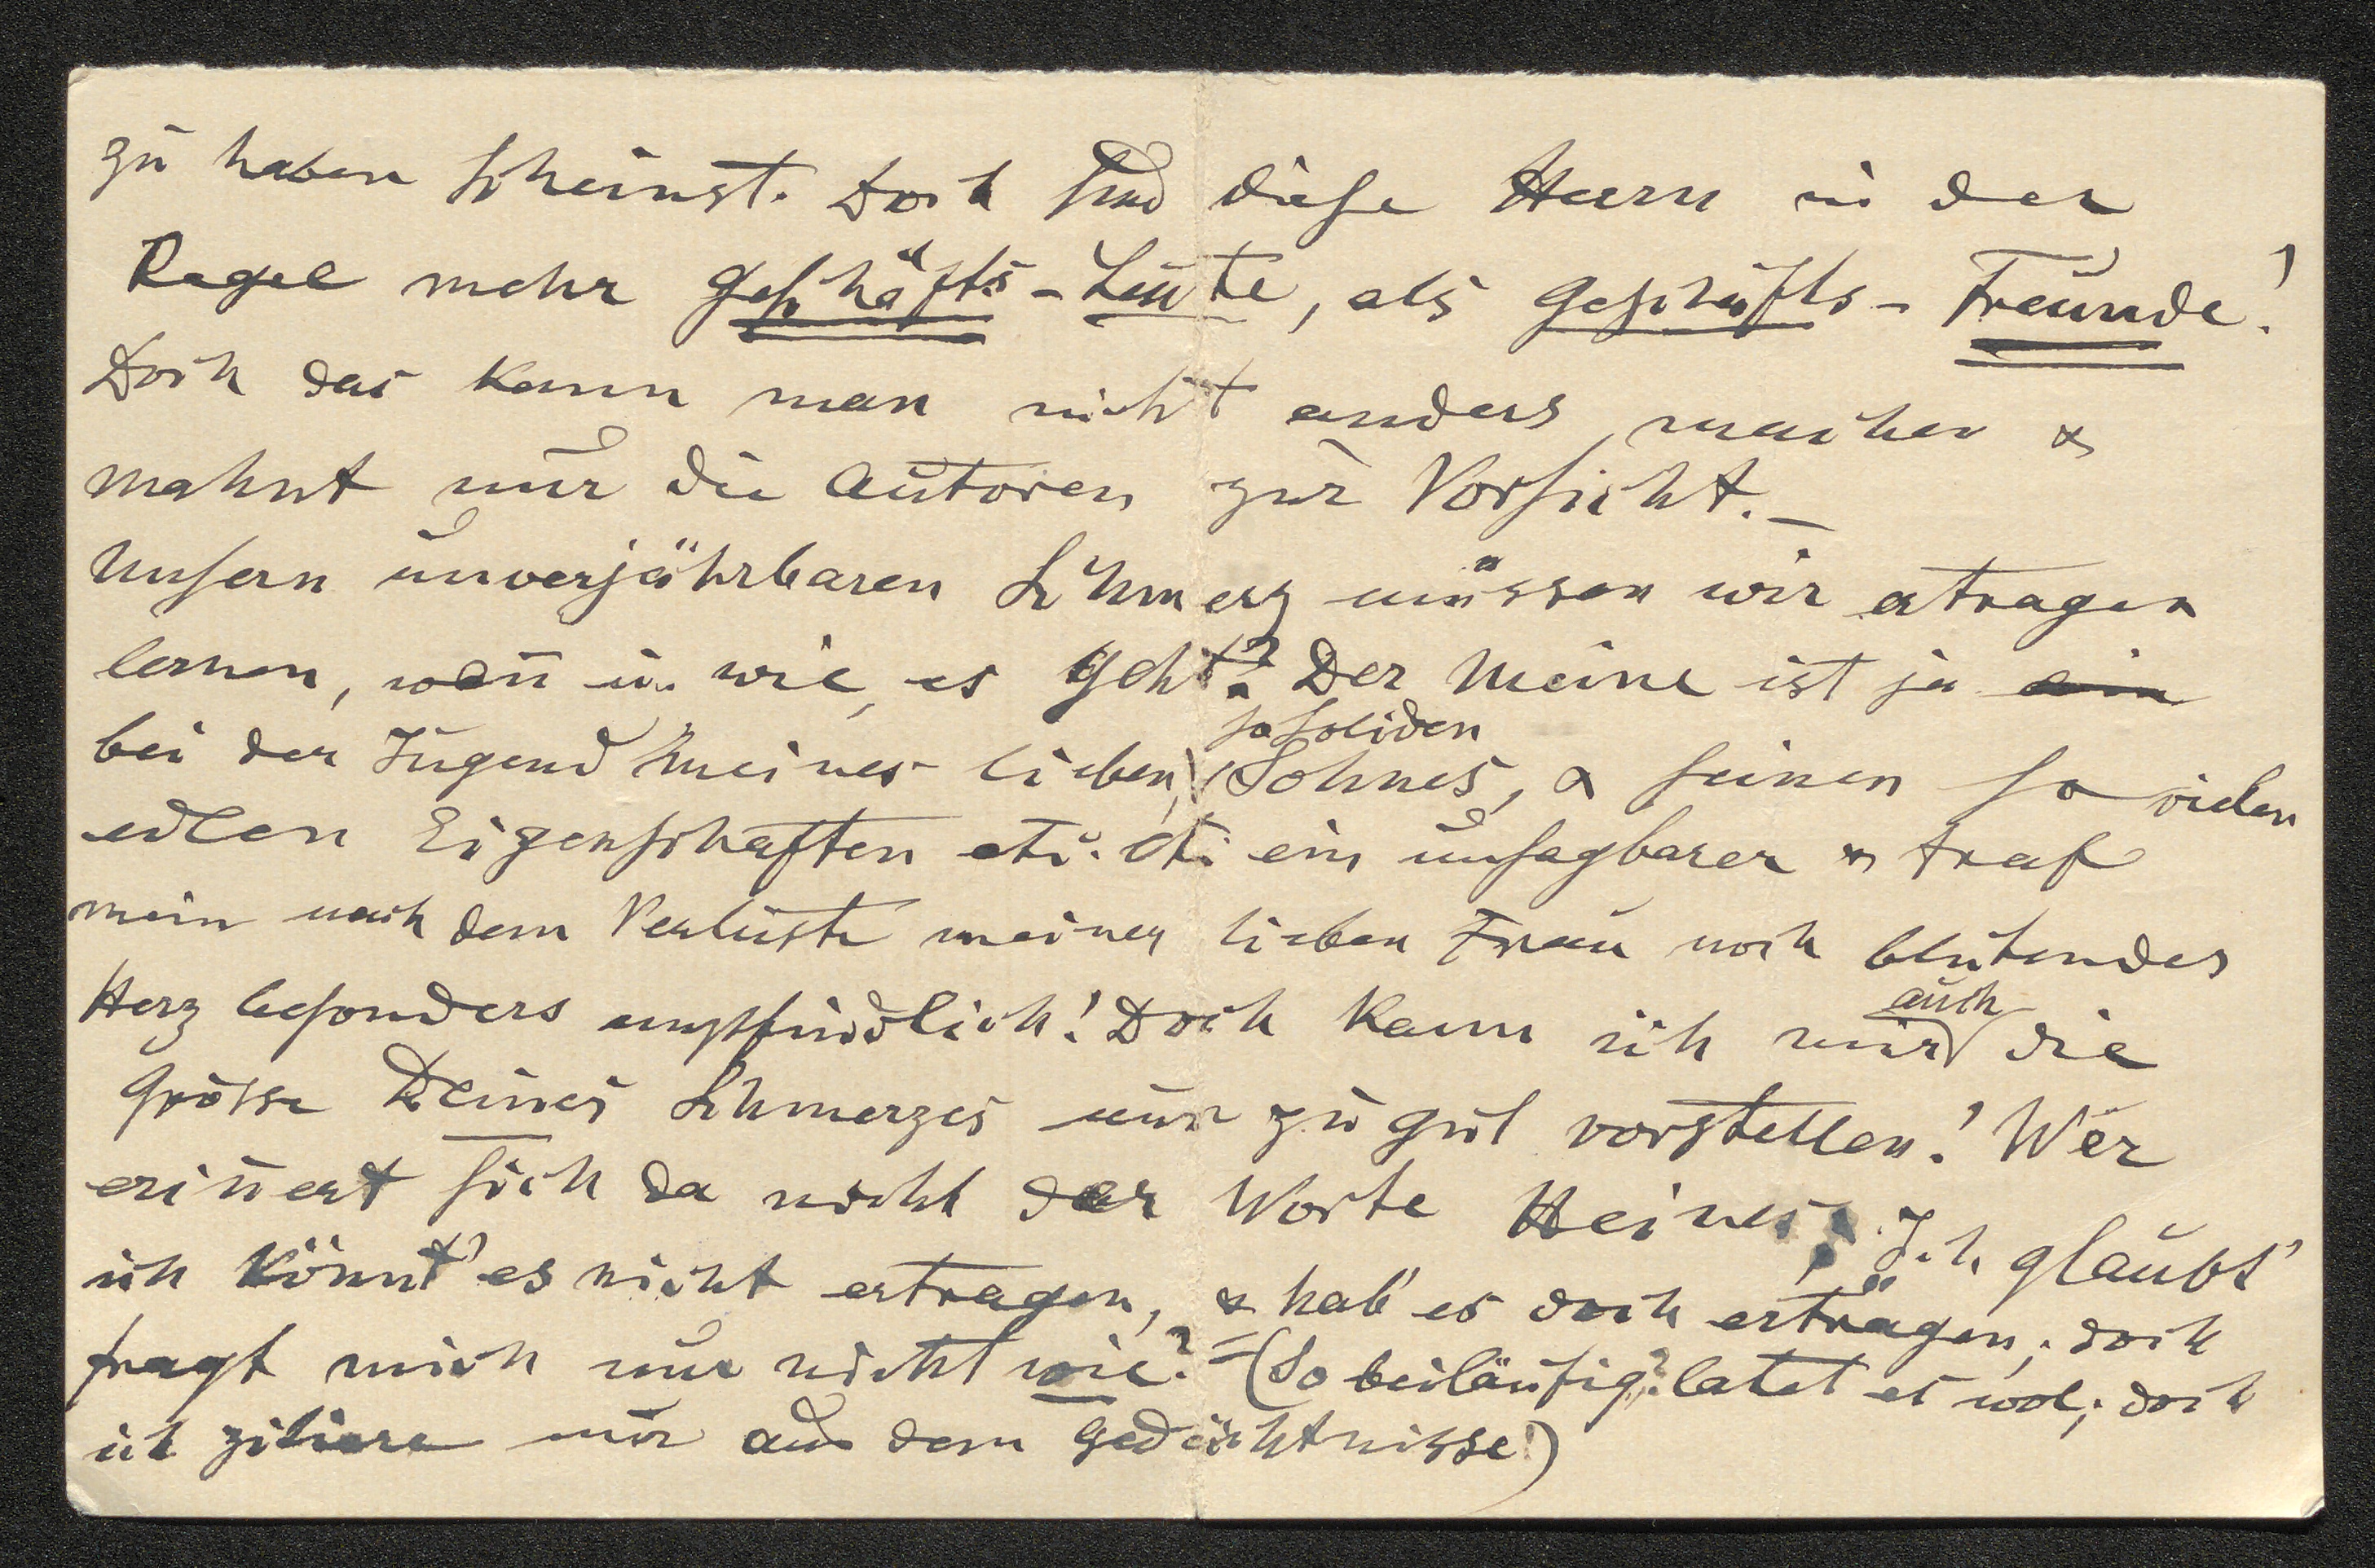 zu haben scheinst. Doch sind diese Herrn in der
Regel mehr Geschäfts-Leute, als Geschäfts-Freunde!
Doch das kann man nicht anders machen &
mahnt nur die Autoren zur Vorsicht.–
Unsern unverjährbaren Schmerz müssen wir ertragen
lernen, wen̄ u. wie, es geht? Der Meine ist ja ein
so soliden
bei der Jugend meines lieben, Sohnes, & seinen so vielen
edlen Eigenschaften etc. etc. ein unsagbarer & traf
mein nach dem Verluste meiner lieben Frau noch blutendes
auch
Herz besonders empfindlich! Doch kann ich mir die
Grösse Deines Schmerzes nur zu gut vorstellen! Wer
erin̄ert sich da nicht der Worte Heines: Ich glaubt'
ich könnt' es nicht ertragen, & hab' es doch ertragen; doch
fragt mich nur nicht wie? = (So beiläufig? latet es wol; doch
ich zitiere nur aus dem Gedächtnisse!)